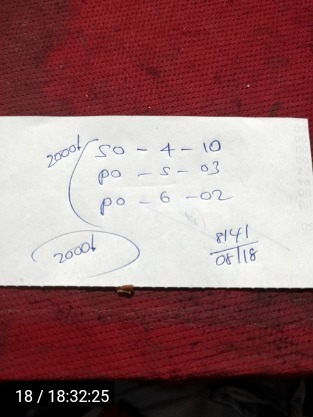 2000/ SO - 4 - 10
PO - 5 - 03
PO - 6 - 02
2000/
8141
08/18
18 / 18:32:25